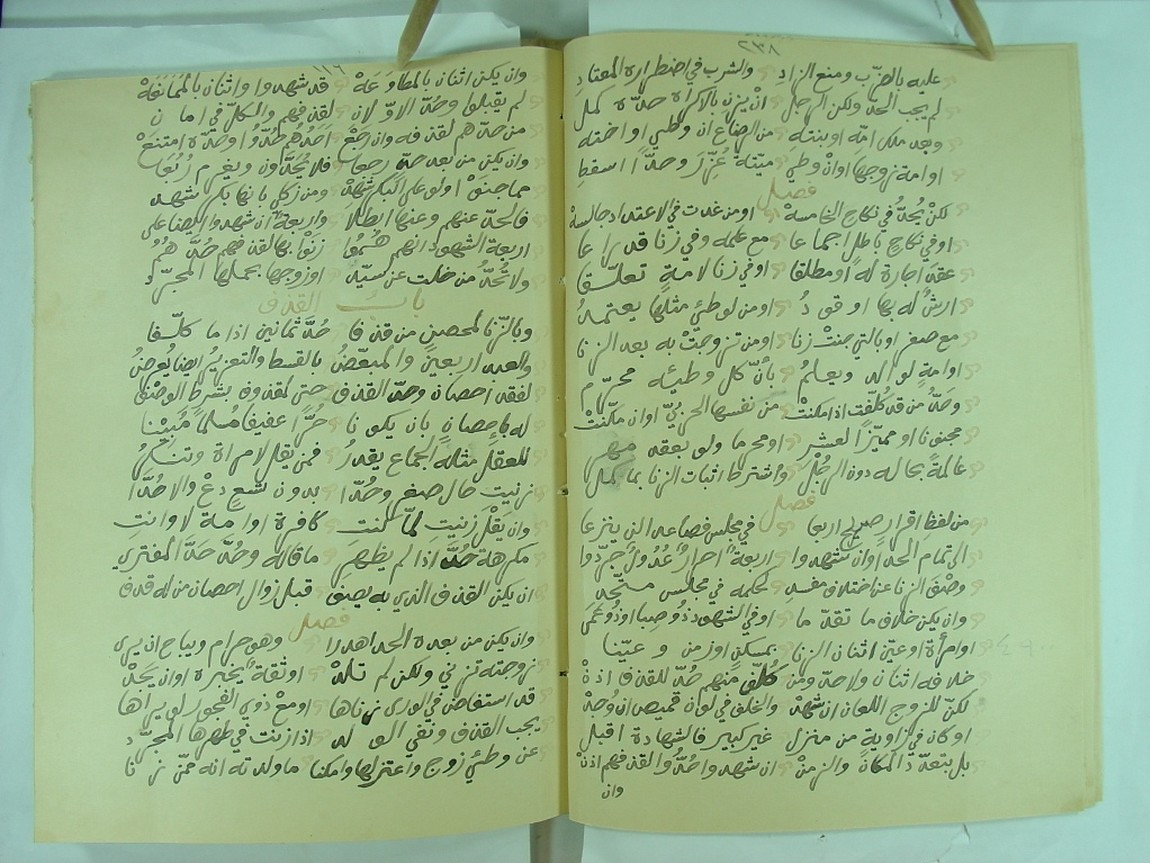 ٢٣٨
عليه بالضرب ومنع الزاد والشرب في اضطراره المعتاد
لم يجب الحد ولكن الرجل ان يزن بالاكراه حده كمل
وبعد ملك امه او بنته من الرضاع ان وطي او اخته
او امة زوجها وان وطي ميتة عزر وحدا اسقط
فصل
لكن يحد في نكاح الخامسة او من غدت في الاعتداد جالسة
او في نكاح باطل اجماعا مع علمه وفي زنا قد راعا
عقد اجارة له او مطلقا او في زنا لامة تعلقا
ارش له بها او قود او من لوطئ مثلها يعتمد
مع صغر او بالتي جنت زنا او من تزوجت به بعد الزنا
او امة لوالد ويعلم بأن كل وطئه محرم
وحد من قد كلفت اذ مكنت من نفسها الحربي او ان مكنت
مجنونا او مميزا لعشر او محرما ولو بعقد مهر
عالمة بحاله دون الرجل واشترط اثبات الزنا بما كمل
فصل
من لفظ اقرار صريح اربعا في مجلس فصاعدا لن ينزعا
الى تمام الحد او ان شهدوا اربعة احرار عدول جردوا
وصف الزنا عن اختلاف مفسد لحكمه في مجلس متحد
وان يكن خلاف ما تقدما او في الشهود ذو صبا او ذو عمى
او امرأة او عين اثنان الزنا بمسكن او زمن وعينا
خلافه اثنان ولاحد ومن كلف منهم حد للقذف اذن
لكن للزوج اللعان ان شهد والخلف في لون قميص ان وجد
او كان في زاوية من منزل غير كبير فالشهادة اقبل
بل بتعدد المكان والزمن ان شهدوا حدوا لقذفهم اذن
وان
وان يكن اثنان بالمطاوعة قد شهدوا واثنان بالممانعة
لم يقبلوا وحد الاولان لقذفهم والكل في امان
من حدهم لقذفه وان رجع احدهم حدوا وحده امتنع
وان يكن من بعد حد رجعا فلا يحدون ويغرم ربعا
مما جنوا ولو على البكر شهد ومن زكي بانها بكر شهد
فالحد عنهم وعنها ابطلا واربعة ان شهدوا ايضا على
اربعة الشهود انهم هموا زنوا بها لقذفهم حد هم
ولا تحد من خلت عن سيد او زوجها بحملها المجرد
باب القذف
وبالزنا لمحصن من قذفا حد ثمانين اذا ما كلفا
والعبد اربعين والمبعض بالقسط والتعزير ايضا يعرض
لفقد احصان وحد القذف حق لمقذوف بشرط الوصف
له باحصان بان يكونا حرا عفيفا مسلما مبينا
للعقل مثله الجماع يقدر فمن يقل لامراة وتنكر
زنيت حال صغر وحددا بدون تسع دع والا حددا
وان يقل زنيت لما كنت كافرة او امة لا وانت
مكرهة حد اذا لم يظهر ما قاله وحد حد المفتري
ان يكن القذف الذي به يصف قبل زوال احصان من له قذف
فصل
وان يكن من بعده الحد اهدرا وهو حرام ويباح ان يرى
زوجته تزني ولكن لم تلد او ثقة يخبره او ان يجد
قد استفاض في الورى زناها او مع ذوي الفجور لو يراها
يجب القذف ونفي الولد اذا زنت في طهرها المجرد
عن وطئ زوج واعتزلها وامكنا ما ولدته انه ممن زنا